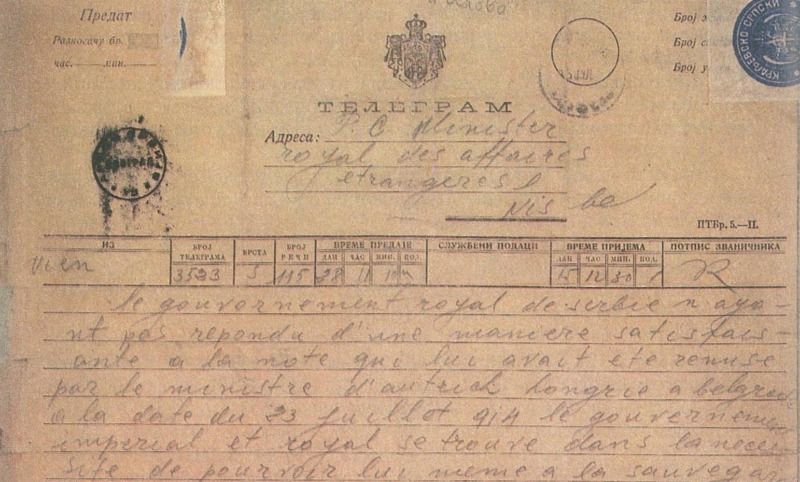 Предат
Разносачу бр.
час. мин.
Број
Број
Број
КРАЉЕВСКО-СРПСКИ
ТЕЛЕГРАМ
Адреса:
Minister
royal des affaires
etrangeres
Nis
ПТБр. 5.—II.
ИЗ
БРОЈ ТЕЛЕГРАМА
ВРСТА
БРОЈ РЕЧИ
ВРЕМЕ ПРЕДАЈЕ
СЛУЖБЕНИ ПОДАЦИ
ВРЕМЕ ПРИЈЕМА
ПОТПИС ЗВАНИЧНИКА
ДАН ЧАС МИН. ПОД.
ДАН ЧАС МИН. ПОД.
Vien 3523 115 28 11 10 15 12 30 R
le gouvernement royal de serbie n aya-
nt pas repondu d'une maniere satisfais-
ante a la note qui lui avait ete remise
par le ministre d'autrich hongrie a belgrade
a la date du 23 juillot 914 le gouvernement
imperial et royal se trouve dans la neces
site de pourvoir lui meme a la sauvegar